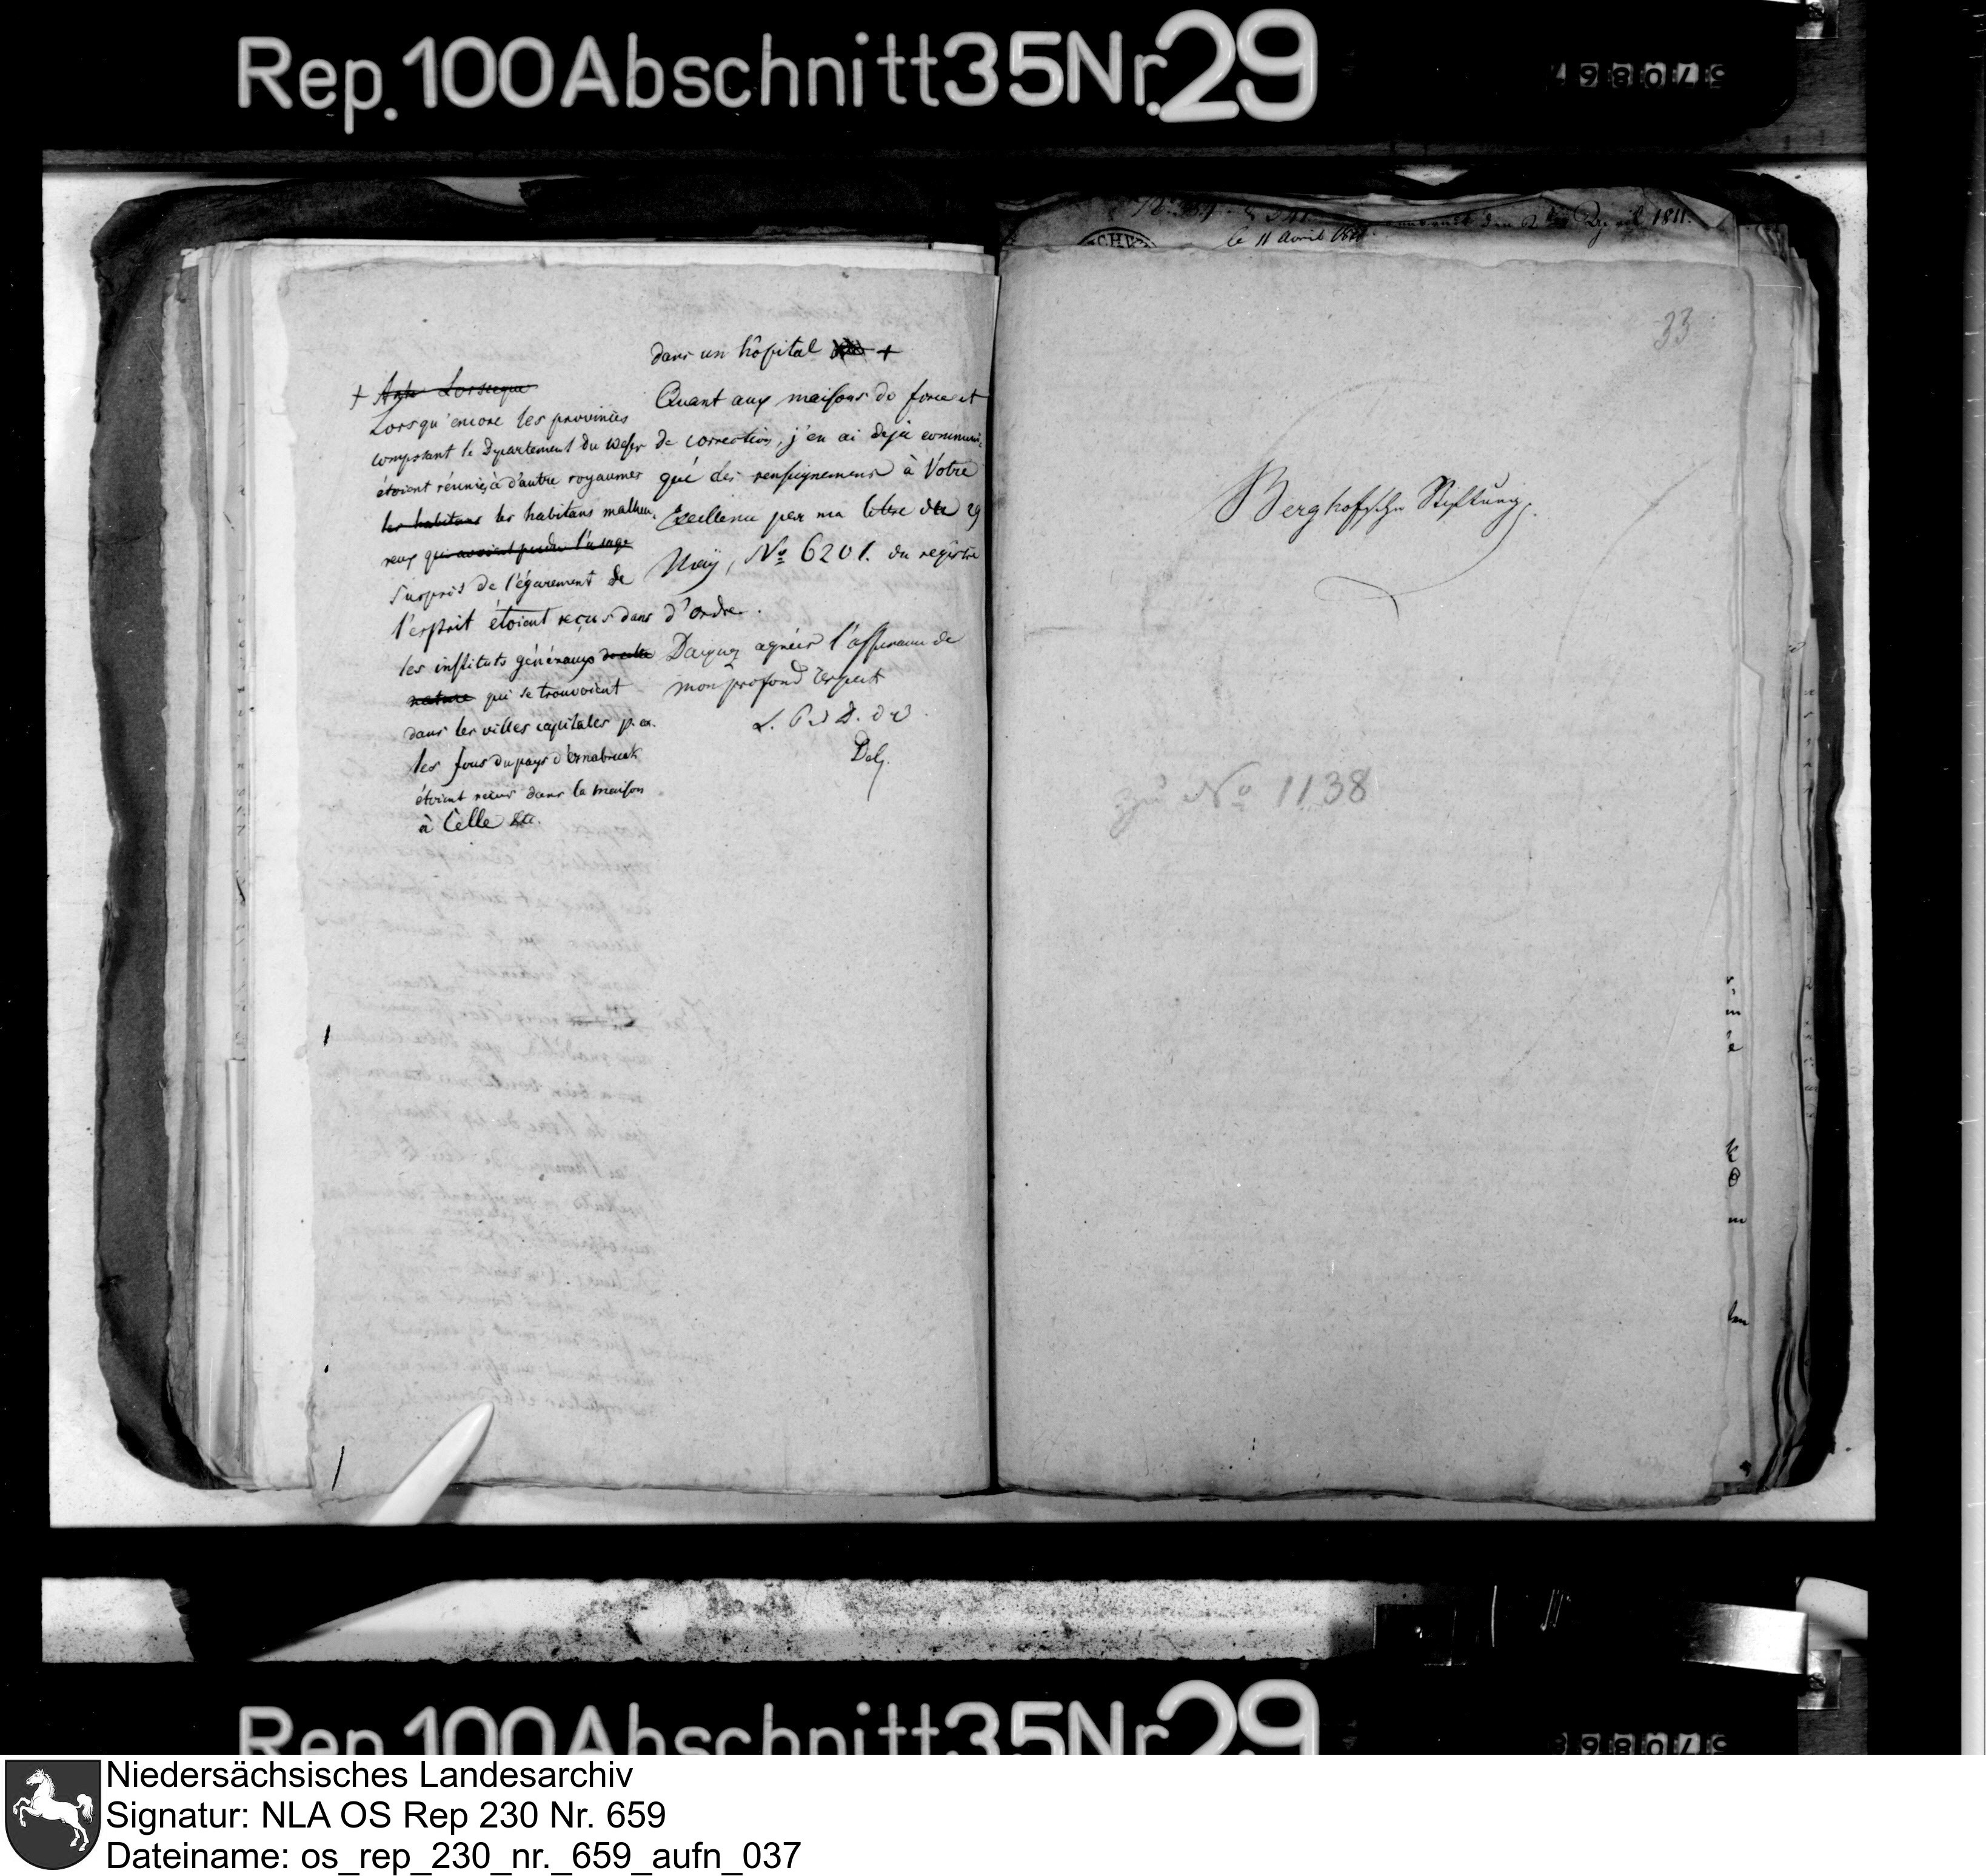 Rep. 100 Abschnitt 35 Nr. 29
le 11 Avril
1811.
33
dans un hôpital +
Quant aux maisons de force et
de correction, j'en ai deja communi-
qué des renseignemens à Votre
Excellence par ma lettre du 29
May, No 6201. du registre
d'Ordre.
Daignez agréer l'assurance de
mon profond respect
L. P. d. D. d W.
Delg.
+ Lorsque
Lorsqu'encore les provinces
composant le Departement du Weser
étoient réunies à d'autre royaumes
les habitans les habitans malheu-
reux qui avoient perdu l'usage
surpris de l'égarement de
l'esprit étoient reçus dans
les instituts généraux de cette
nature qui se trouvoient
dans les villes capitales p. ex.
les fous du pays d'Osnabruck
étoient reçus dans la maison
à Celle
Berghoffsche Stiftung.
zu No 1138
Rep. 100 Abschnitt 35 Nr. 29
Niedersächsisches Landesarchiv
Signatur: NLA OS Rep 230 Nr. 659
Dateiname: os_rep_230_nr._659_aufn_037